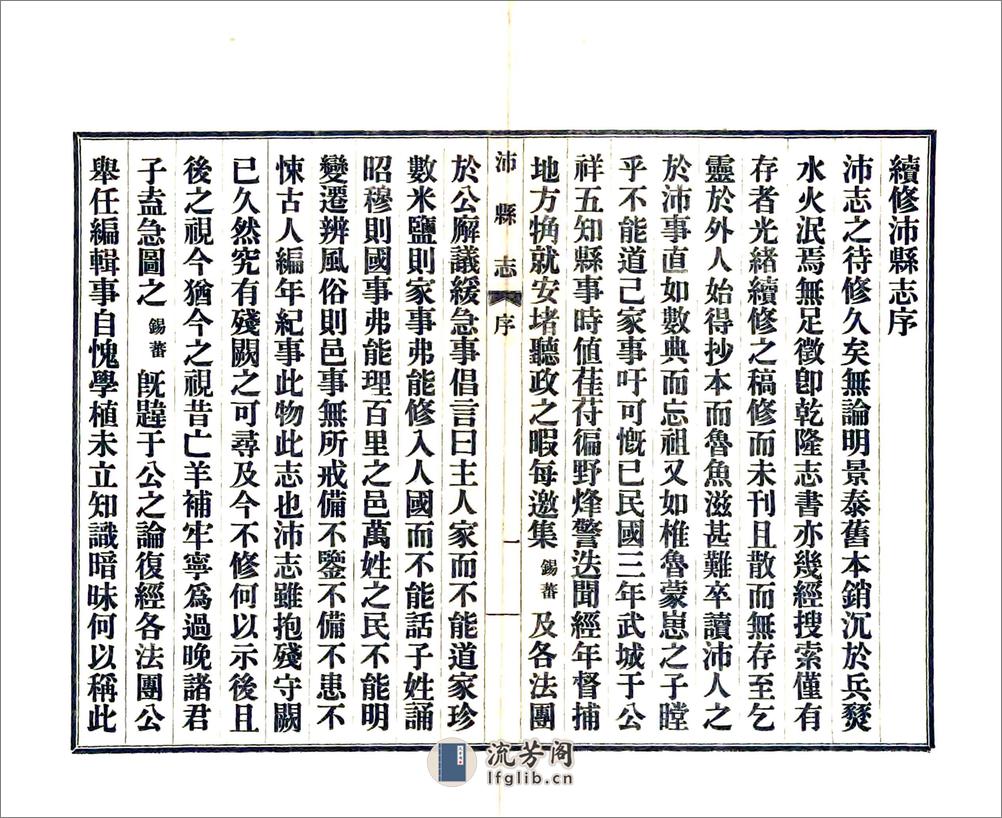 續修沛縣志序
沛志之待修久矣無論明景泰舊本銷沉於兵燹
水火泯焉無足徵卽乾隆志書亦幾經搜索僅有
存者光緒續修之稿修而未刊且散而無存至乞
靈於外人始得抄本而魯魚滋甚難卒讀沛人之
於沛事直如數典而忘祖又如椎魯蒙崽之子瞠
乎不能道己家事吁可慨已民國三年武城于公
祥五知縣事時値萑苻徧野烽警迭聞經年督捕
地方觕就安堵聽政之暇每邀集錫蕃及各法團
沛縣志 序 一
於公廨議緩急事倡言曰主人家而不能道家珍
數米鹽則家事弗能修入人國而不能話子姓誦
昭穆則國事弗能理百里之邑萬姓之民不能明
變遷辨風俗則邑事無所戒備不鑒不備不患不
悚古人編年紀事此物此志也沛志雖抱殘守闕
已久然究有殘闕之可尋及今不修何以示後且
後之視今猶今之視昔亡羊補牢寧爲過晚諸君
子盍急圖之錫蕃旣韙于公之論復經各法團公
舉任編輯事自愧學植未立知識暗昧何以稱此
流芳阁
lfglib.cn